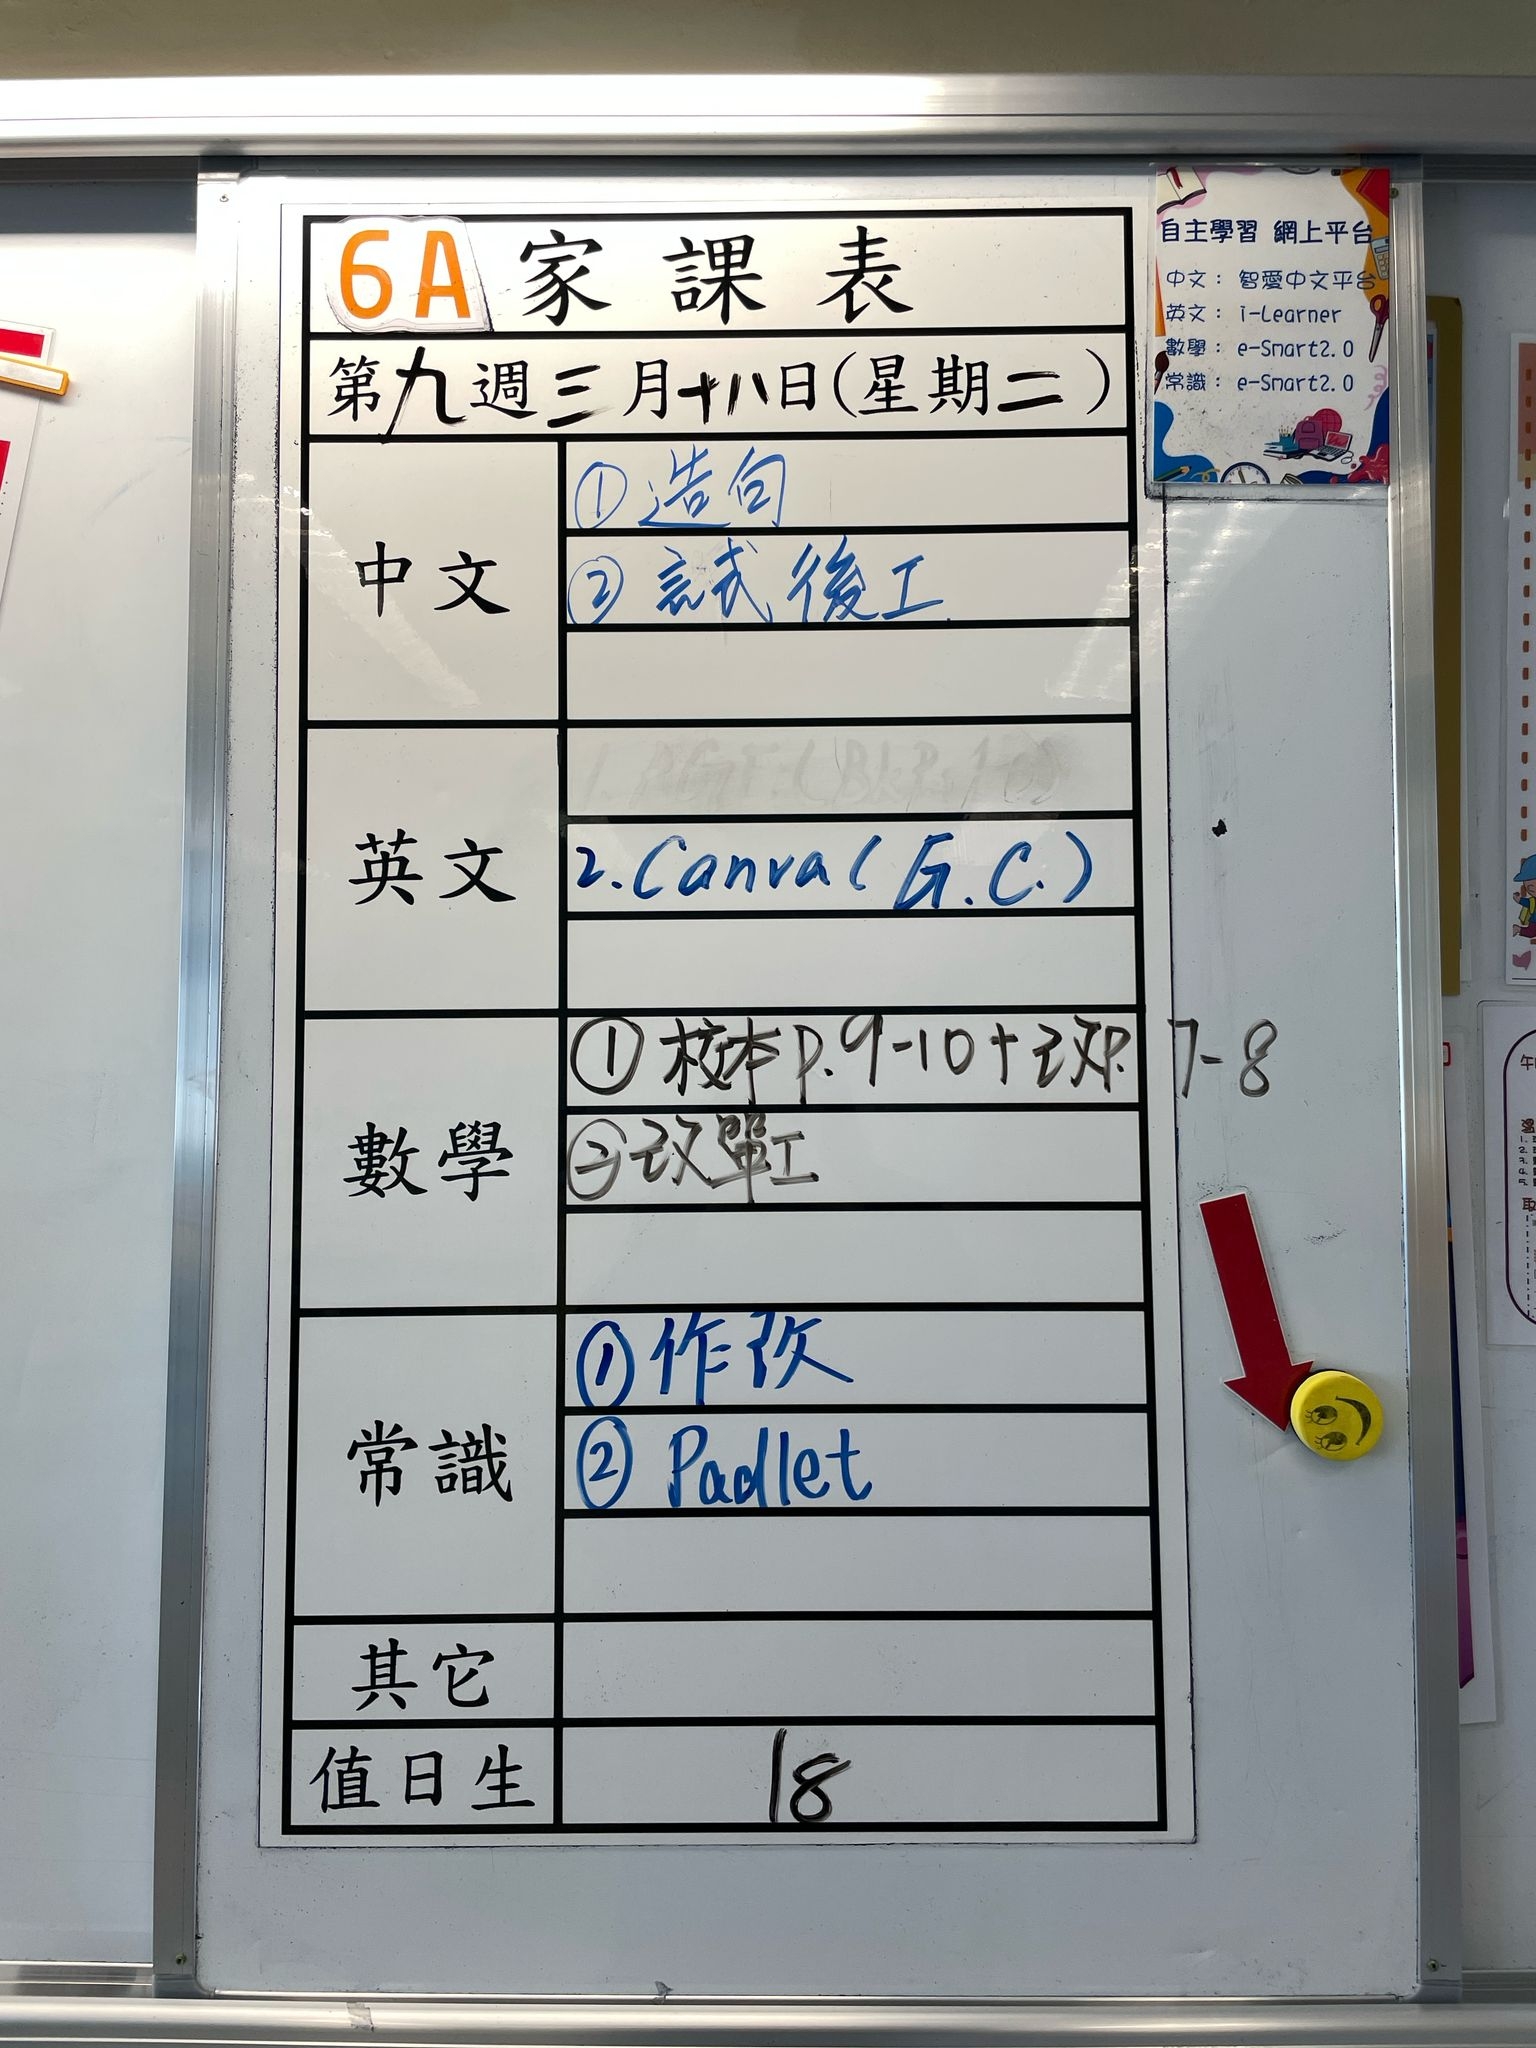 6A 家課表
第九週三月十八日(星期二)
中文
① 造句
② 試後工
英文
2. Canva (G.C.)
數學
① 校本P.9-10+改P.7-8
② 改單工
常識
① 作改
② Padlet
其它
值日生
18
自主學習 網上平台
中文： 智愛中文平台
英文： i-Learner
數學： e-Smart2.0
常識： e-Smart2.0